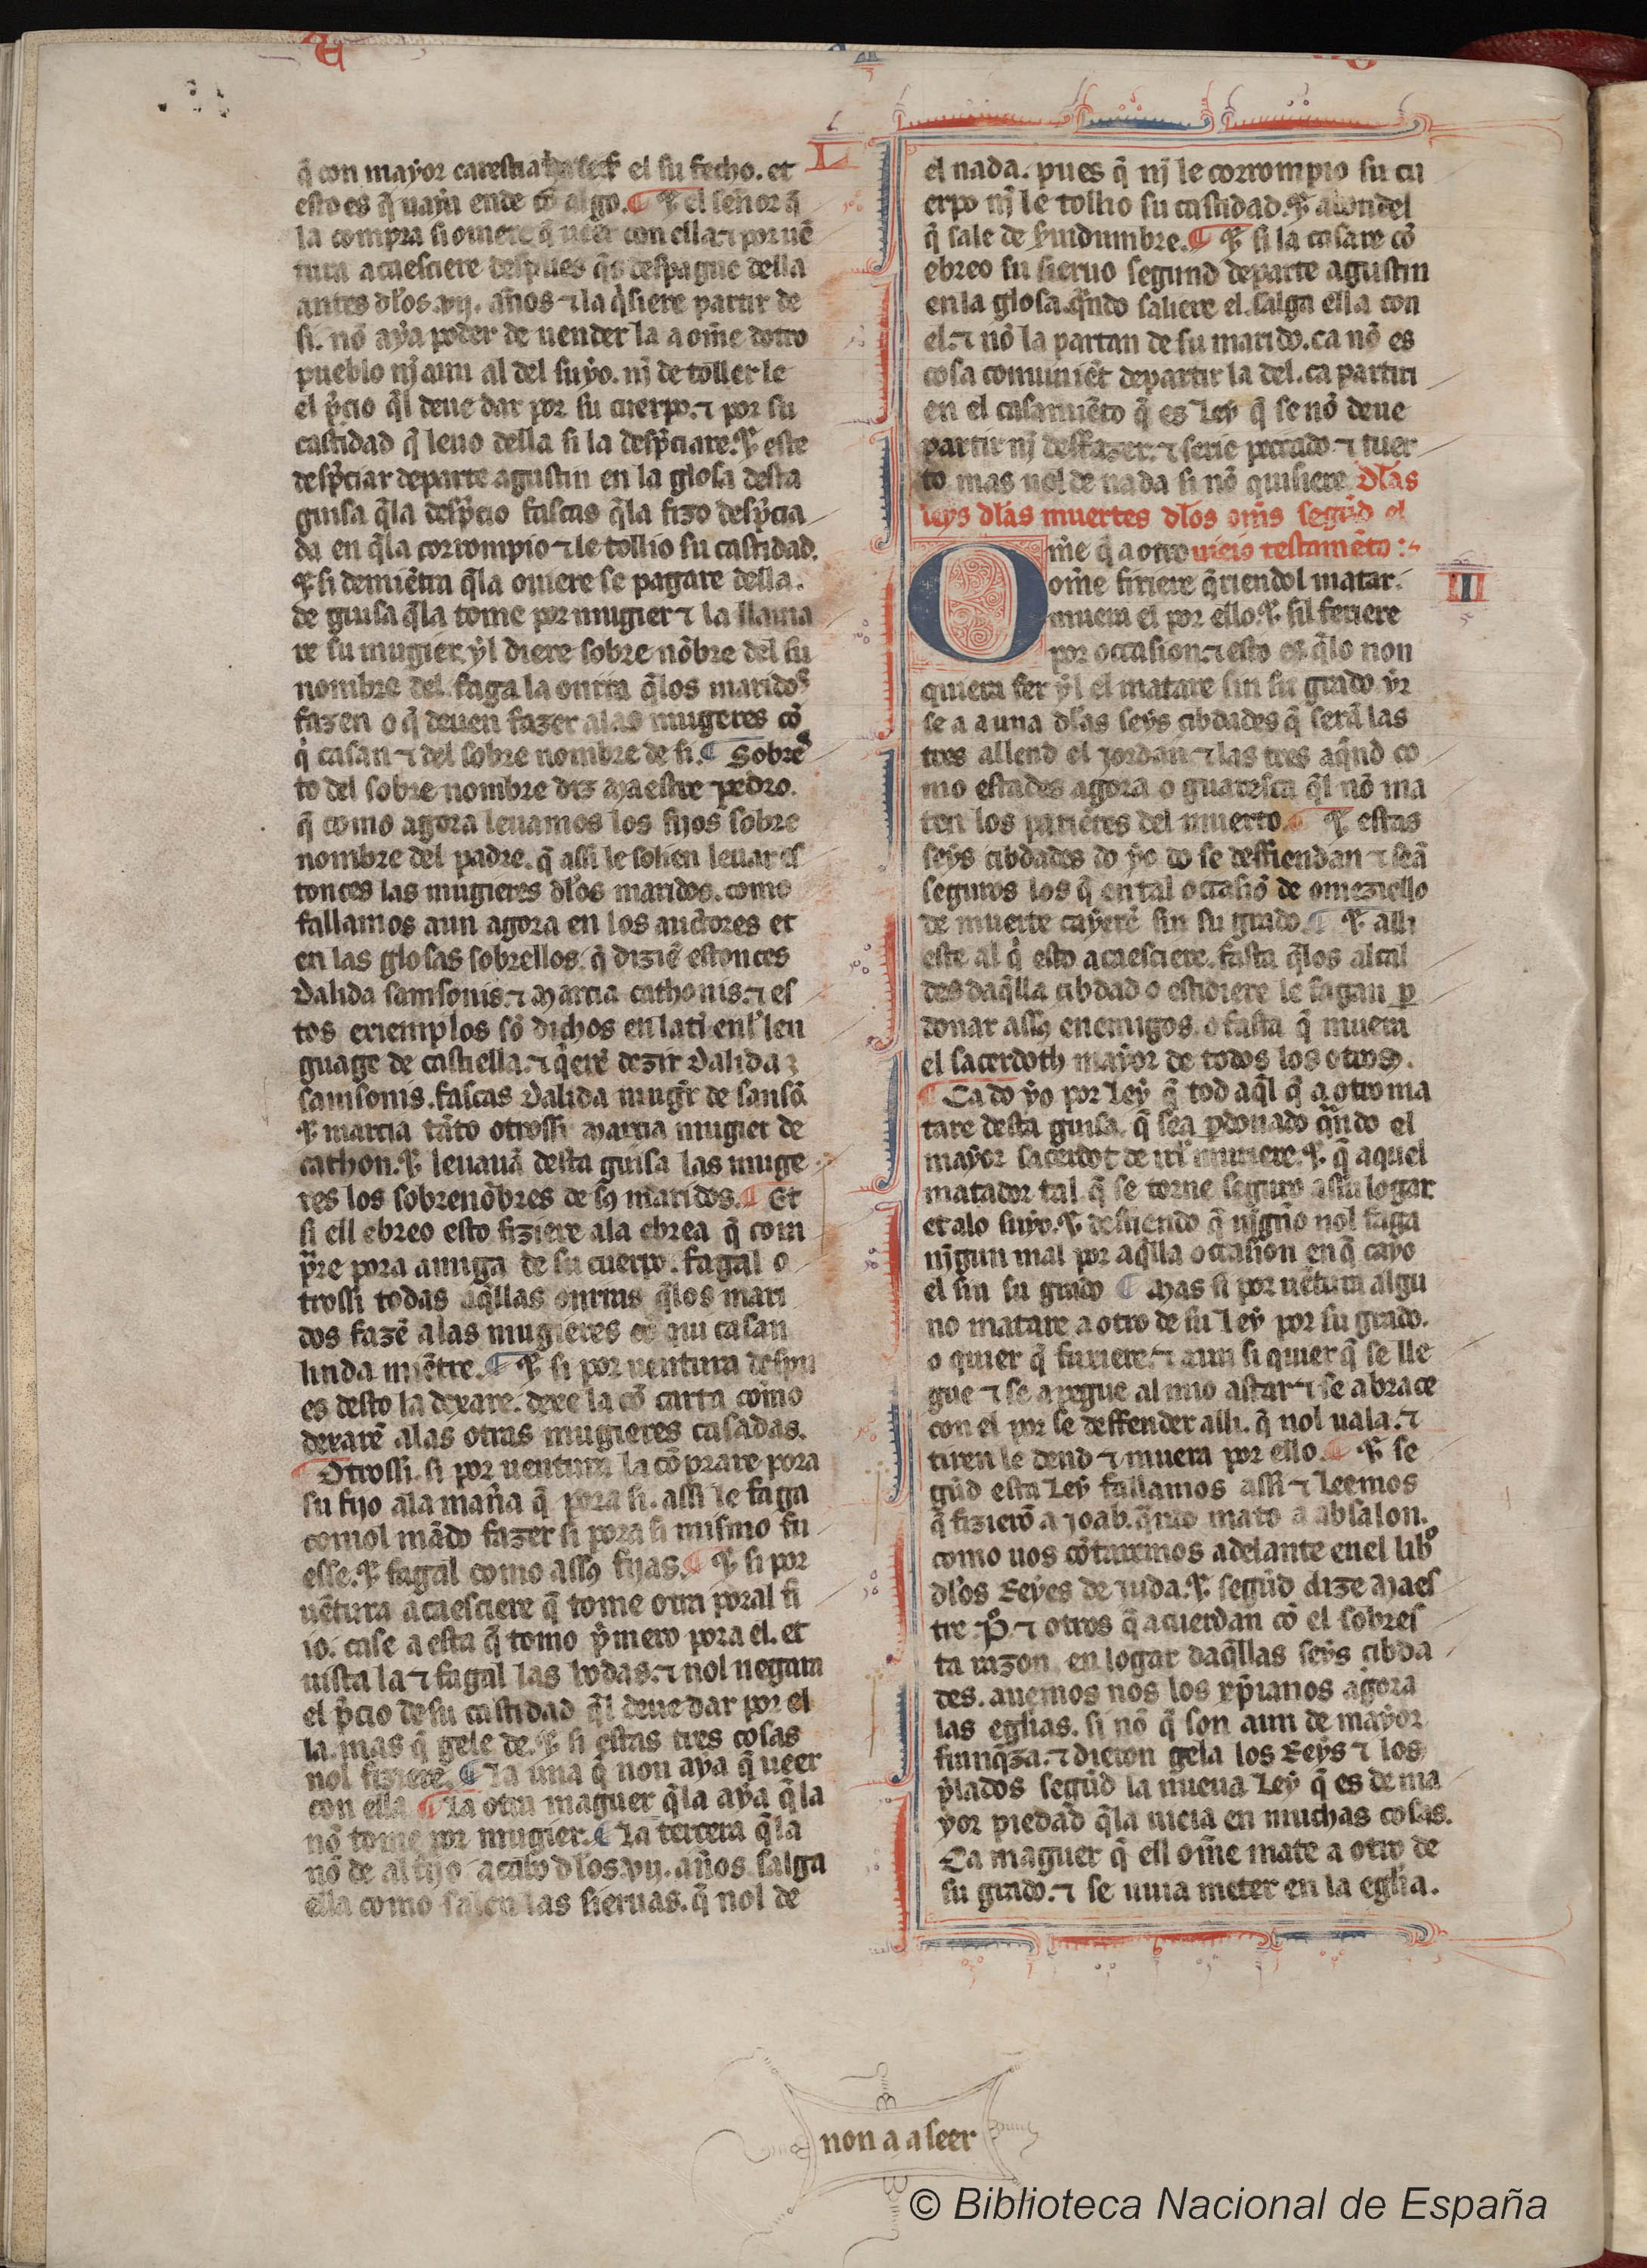 q̃ con mayor carestia el su fecho. et
esto es q̃ uaya ende cõ algo. ¶ ⁊ el señor q̃
la compra si ouiere q̃ ueer con ella. ⁊ por uẽ
tura acaesciere despues q̃s despague della
antes dłos .vij. años ⁊ la q̇siere partir de
si. nõ aya poder de uender la a om̃e dotro
pueblo nj̃ aun al del suyo. nj̃ de toller le
el p̃cio q̃l deue dar por su cuerpo. ⁊ por su
castidad q̃ leuo della si la desp̃ciare. ⁊ este
desp̃ciar departe agustin en la glosa desta
guisa q̃la desp̃cio fascas q̃la fizo desp̃cia
da en q̃la corrompio ⁊ le tollio su castidad.
⁊ si demiẽtra q̃la ouiere se pagare della.
de guisa q̃la tome por mugier ⁊ la llama
re su mugier. ẏl diere sobre nõbre del su
nombre del. faga la onrra q̃los maridos
fazen o q̃ deuen fazer a las mugeres cõ
q̇ casan ⁊ del sobre nombre de si. ¶ Sobres
to del sobre nombre diz Maestre Pedro.
q̃ como agora leuamos los fijos sobre
nombre del padre. q̃ assi le solien leuar es
tonces las mugieres dłos maridos. como
fallamos aun agora en los auctores et
en las glosas sobrellos. q̃ diziẽ estonces
Dalida samsonis. ⁊ Marcia cathonis. ⁊ es
tos exiemplos sõ dichos en lati enl' len
guage de castiella. ⁊ q̃erẽ dezir Dalida
samsonis. fascas Dalida mug̃r de sansõ.
⁊ marcia tãto otrossi Marcia mugier de
cathon. ⁊ leuauã desta guisa las muge
res los sobrenõbres de sꝯ maridos. ¶ Et
si ell ebreo esto fiziere ala ebrea q̃ com
p̃re pora amiga de su cuerpo. fagal o
trossi todas aq̃llas onrras q̃los mari
dos fazẽ a las mugieres cõ qui casan
linda miẽtre. ¶ ⁊ si por uentura despu
es desto la dexare. dexe la cõ carta como
dexarẽ a las otras mugieres casadas.
¶ Otrossi. si por uentura la cõprare pora
su fijo ala mañа q̃ pora si. assi le faga
comol mãdo fazer si pora si mismo fu
esse. ⁊ fagal como assꝯ fijas. ¶ ⁊ si por
uẽtura acaesciere q̃ tome otra poral fi
io. case a esta q̃ tomo p̃mero pora el. et
uista la ⁊ fagal las bodas. ⁊ nol negara
el p̃cio de su castidad q̃l deue dar por el
la. mas q̃ gele de. ⁊ si estas tres cosas
nol fiziere. ¶ La una q̃ non aya q̃ ueer
con ella ¶ La otra maguer q̃la aya q̃la
nõ tome por mugier. ¶ La tercera q̃la
nõ de al fijo acabo dłos .vij. años. salga
ella como salen las sieruas. q̃ nol de
L
el nada. pues q̃ nj̃ le corrompio su cu
erpo nj̃ le tollio su castidad. ⁊ abondel
q̃ sale de s̃uidumbre. ¶ ⁊ si la casare cõ
ebreo su sieruo segund departe agustin
en la glosa. q̃ndo saliere el. salga ella con
el. ⁊ nõ la partan de su marido. ca nõ es
cosa comuniẽt departir la del. ca partiri
en el casamiẽto q̃ es Ley q̃ se nõ deue
partir nj̃ desfazer. ⁊ serie peccado ⁊ tuer
to. mas nol de nada si nõ quisiere. Dłas
leys dłas muertes dłos om̃s segũd el
Om̃e q̃ a otro uieio testamẽto
om̃e firiere q̃riendol matar.
muera el por ello. ⁊ sil feriere
por occasion. ⁊ esto es q̃lo non
quiera fer ẏl el matare sin su grado. ẏr
se a a una dłas seys cibdades q̃ serã las
tres allend el Jordan ⁊ las tres aq̃nd co
mo estades agora o guaresca q̃l nõ ma
ten los pariẽtes del muerto. ¶ ⁊ estas
seys cibdades do yo do se deffiendan ⁊ seã
seguros los q̃ en tal occasiõ de omeziello
de muerte cayerẽ sin su grado. ¶ ⁊ alli
este al q̇ esto acaesciere. fasta q̃los alcal
des daq̃lla cibdad o estidiere le fagan ꝑ
donar assꝯ enemigos. o fasta q̃ muera
el sacerdoth mayor de todos los otros.
¶ Ca do yo por Ley q̃ tod aq̃l q̃ a otro ma
tare desta guisa. q̃ sea ꝑdonado q̃ndo el
mayor sacerdot de irł muriere. ⁊ q̃ aquel
matador tal q̃ se torne seguro a su logar
et alo suyo. ⁊ defiendo q̃ nĩgño nol faga
nĩgun mal por aq̃lla occasion en q̃ cayo
el sin su grado ¶ Mas si por uẽtura algu
no matare a otro de su Ley por su grado.
o quier q̃ fuxiere. ⁊ aun si quier q̃ se lle
gue ⁊ se apegue al mio altar ⁊ se abrace
con el por se deffender alli. q̃ nol uala. ⁊
tiren le dend ⁊ muera por ello. ¶ ⁊ se
gũd esta Ley fallamos assi ⁊ Leemos
q̃ fizierõ a Joab. q̃ndo mato a absalon.
como uos cõtaremos adelante en el libº
dłos Reyes de Juda. ⁊ segũd dize Maes
tre Pº. ⁊ otros q̃ acuerdan cõ el sobres
ta razon. en logar daq̃llas seys cibda
des. auemos nos los xp̃ianos agora
las eglias. si nõ q̃ son aun de mayor
franq̃za. ⁊ dieron gela los Reys ⁊ los
p̃lados segũd la nueua Ley q̃ es de ma
yor piedad q̃la uieia en muchas cosas.
Ca maguer q̃ ell om̃e mate a otro de
su grado. ⁊ se uuia meter en la eglia.
III
non a a seer
© Biblioteca Nacional de España